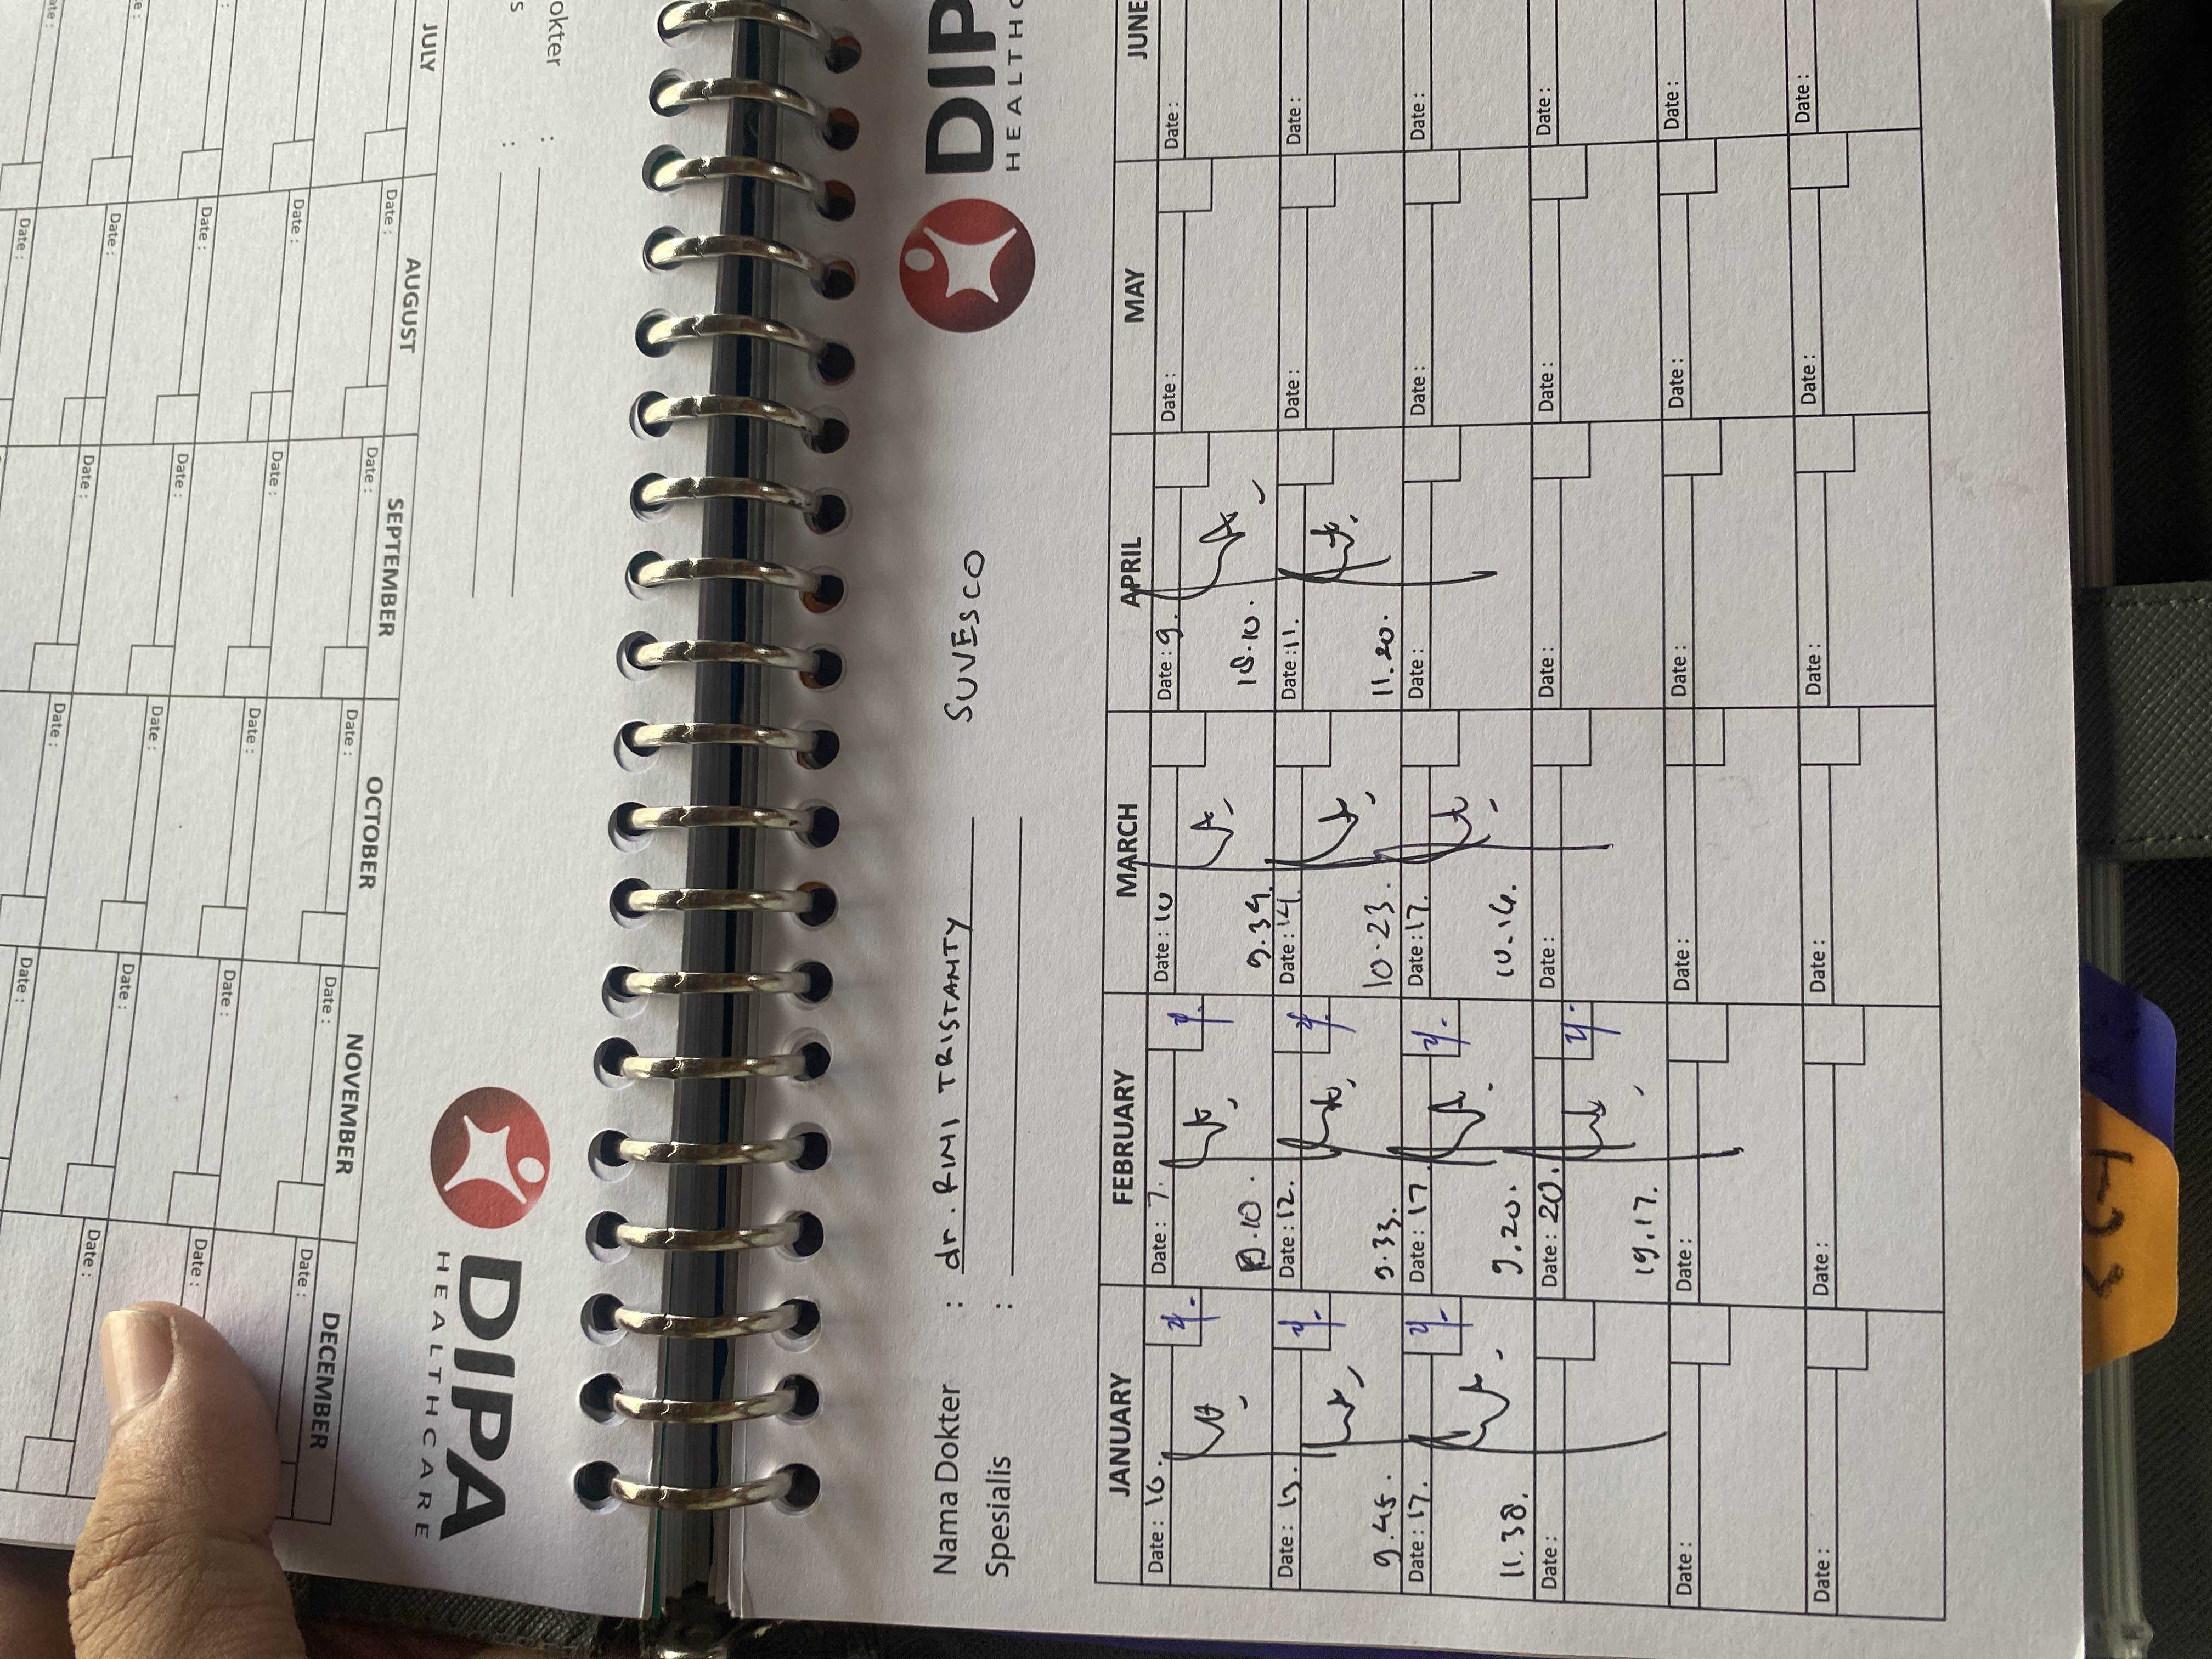 DIPA
HEALTHCARE
JULY AUGUST SEPTEMBER OCTOBER NOVEMBER DECEMBER
Date : Date : Date : Date : Date :
Date : Date : Date : Date : Date :
Date : Date : Date : Date : Date :
Date : Date : Date :
Date :
DIP
HEALTHC
Nama Dokter : dr. RINI TRISTANTY SUVESCO
Spesialis :
JANUARY FEBRUARY MARCH APRIL MAY JUNE
Date : 10. Date : 7. Date : 10 Date : 9. Date : Date :
.10. 9.39. 18.10.
Date : 13. Date : 12. Date : 14. Date : 11. Date : Date :
9.45. 9.33. 10.23. 11.20.
Date : 17. Date : 17 Date : 17. Date : Date : Date :
11.38. 9.20. 10.14.
Date : Date : 20. Date : Date : Date : Date :
19.17.
Date : Date : Date : Date : Date : Date :
Date : Date : Date : Date : Date : Date :